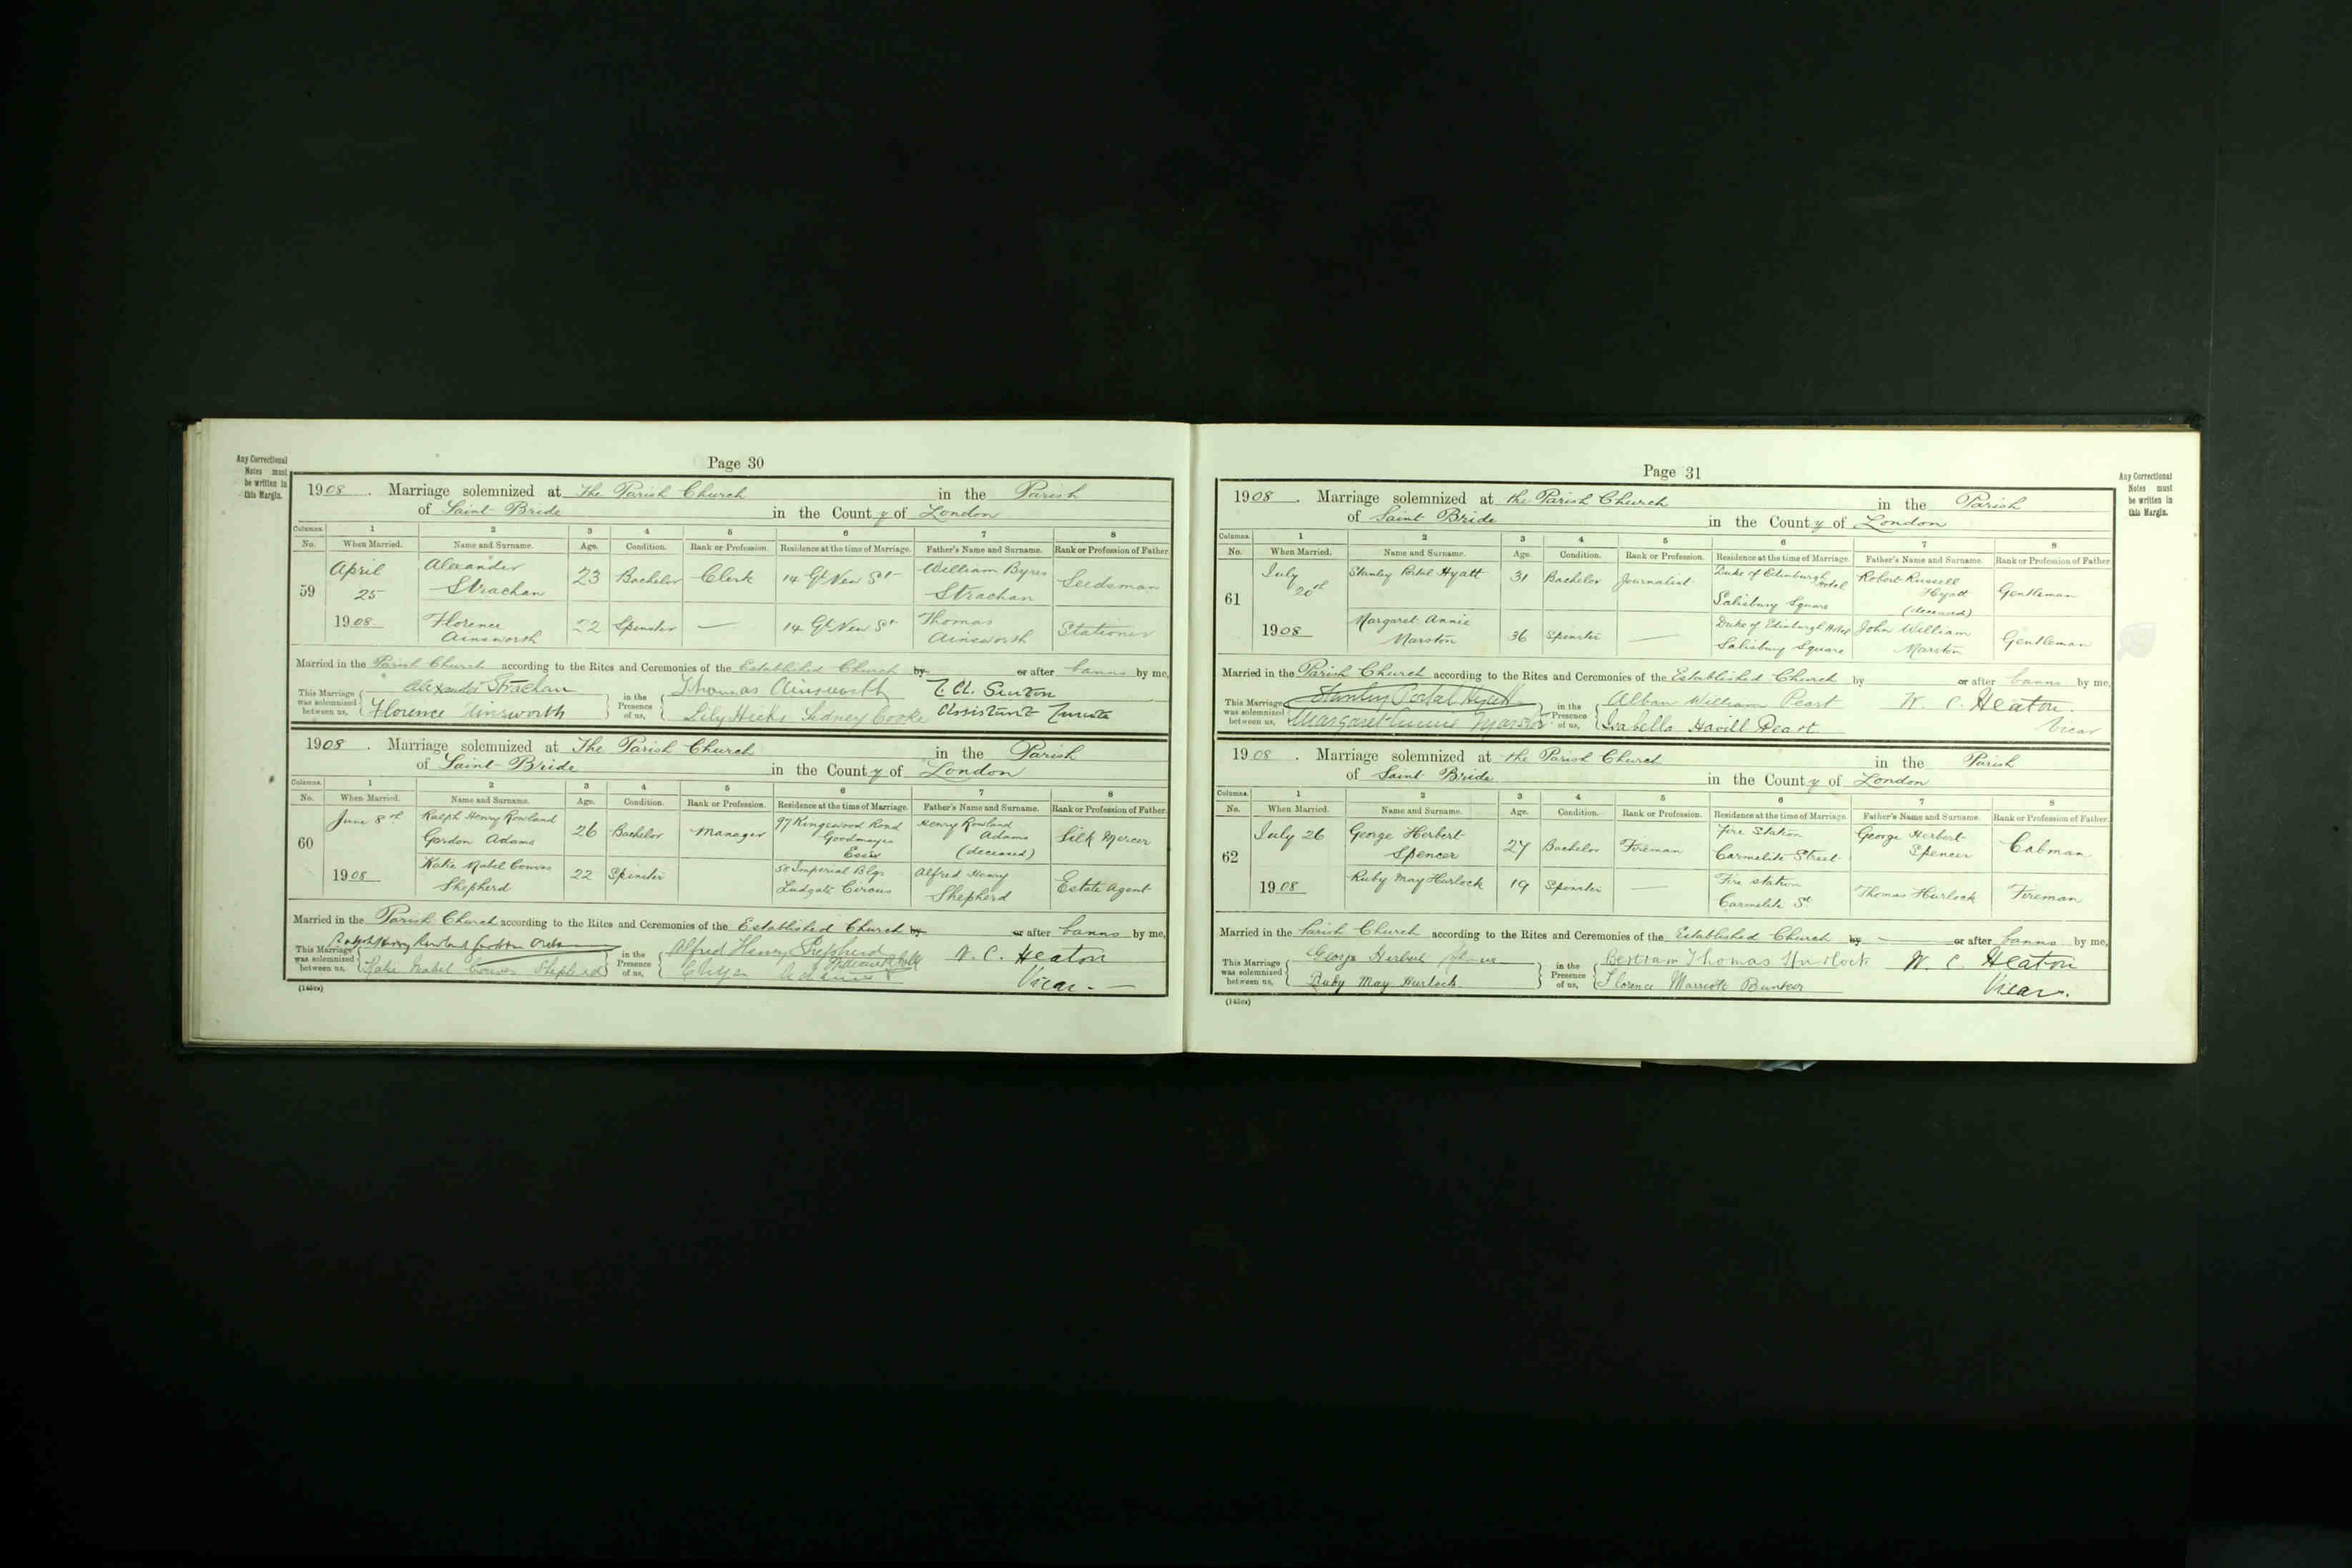 Any Correctional
Notes must
be written in
this Margin.
Page 30
1908. Marriage solemnized at The Parish Church in the Parish
of Saint Bride in the County of London
Columns. 1 2 3 4 5 6 7 8
No. When Married. Name and Surname. Age. Condition. Rank or Profession. Residence at the time of Marriage. Father's Name and Surname. Rank or Profession of Father.
59 April 25 1908 Alexander Strachan 23 Bachelor Clerk 14 Gt New St William Byres Strachan Seedsman
Florence Ainsworth 22 Spinster — 14 Gt New St Thomas Ainsworth Stationer
Married in the Parish Church according to the Rites and Ceremonies of the Established Church by or after banns by me,
This Marriage was solemnized between us, Alexander Strachan Florence Ainsworth in the Presence of us, Thomas Ainsworth Lily Hicks Sidney Cooke Assistant Curate
1908. Marriage solemnized at The Parish Church in the Parish
of Saint Bride in the County of London
Columns. 1 2 3 4 5 6 7 8
No. When Married. Name and Surname. Age. Condition. Rank or Profession. Residence at the time of Marriage. Father's Name and Surname. Rank or Profession of Father.
60 June 8th 1908 Ralph Henry Rowland Gordon Adams 26 Bachelor Manager 97 Kingswood Road Goodmayes Essex Henry Rowland Adams (deceased) Silk Mercer
Kate Mabel Shepherd 22 Spinster 58 Imperial Blgs Ludgate Circus Alfred Henry Shepherd Estate Agent
Married in the Parish Church according to the Rites and Ceremonies of the Established Church by or after banns by me,
This Marriage was solemnized between us, Kate Mabel Shepherd in the Presence of us, Alfred Henry Shepherd W. C. Heaton
Vicar.
(143cs)
Page 31
Any Correctional
Notes must
be written in
this Margin.
1908. Marriage solemnized at the Parish Church in the Parish
of Saint Bride in the County of London
Columns. 1 2 3 4 5 6 7 8
No. When Married. Name and Surname. Age. Condition. Rank or Profession. Residence at the time of Marriage. Father's Name and Surname. Rank or Profession of Father.
61 July 20th 1908 Stanley Portal Hyatt 31 Bachelor Journalist Duke of Edinburgh Hotel Salisbury Square Robert Russell Hyatt (deceased) Gentleman
Margaret Annie Marston 36 Spinster — Duke of Edinburgh Hotel Salisbury Square John William Marston Gentleman
Married in the Parish Church according to the Rites and Ceremonies of the Established Church by or after banns by me,
This Marriage was solemnized between us, Stanley Portal Hyatt Margaret Annie Marston in the Presence of us, Alban William Peart Isabella Havill Peart W. C. Heaton.
Vicar
1908. Marriage solemnized at the Parish Church in the Parish
of Saint Bride in the County of London
Columns. 1 2 3 4 5 6 7 8
No. When Married. Name and Surname. Age. Condition. Rank or Profession. Residence at the time of Marriage. Father's Name and Surname. Rank or Profession of Father.
62 July 26 1908 George Herbert Spencer 27 Bachelor Fireman Fire Station Carmelite Street George Herbert Spencer Cabman
Ruby May Hurlock 19 Spinster — Fire station Carmelite St Thomas Hurlock Fireman
Married in the Parish Church according to the Rites and Ceremonies of the Established Church by or after banns by me,
This Marriage was solemnized between us, George Herbert Spencer Ruby May Hurlock in the Presence of us, Bertram Thomas Hurlock Florence Marriott Bunker W. C. Heaton
Vicar.
(143cs)